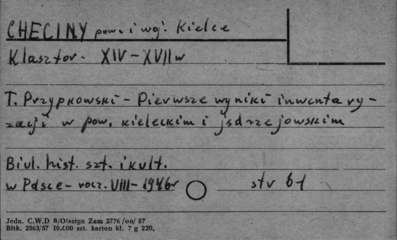 CHĘCINY pow. i woj. Kielce
Klasztor. XIV-XVII w
T. Przypkowski - Pierwsze wyniki inwentary-
zacji w pow. kieleckim i jędrzejowskim
Biul. hist. szt. i kult.
w Polsce - rocz. VIII - 1946r str 61
Jedn. C.W.D R/Olsztyn Zam 2776/on/57
Bltk. 2563/57 10.000 szt. karton kl. 7 g 220.